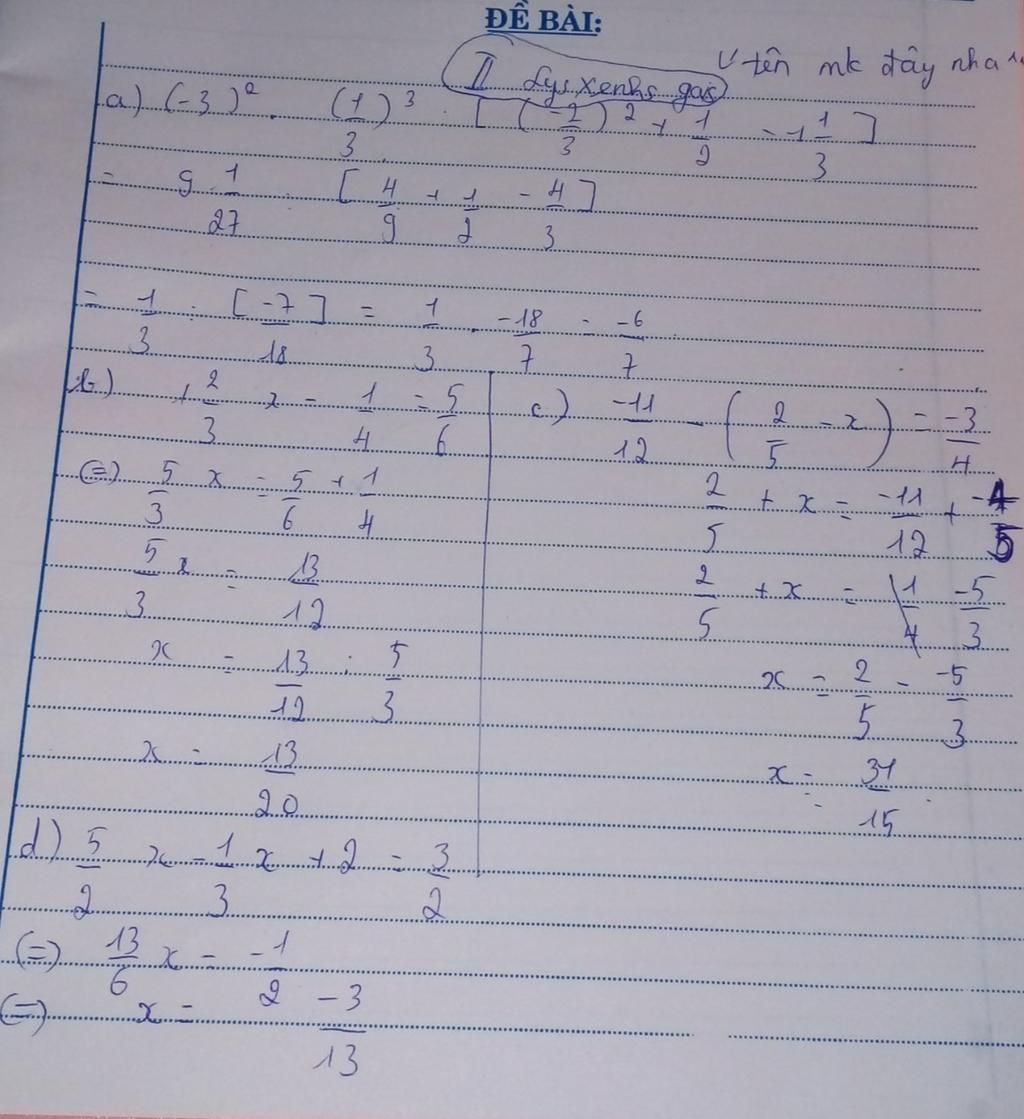 ĐỀ BÀI:
II Lyxenhs gais
tên mk đây nha
a) (-3)² . (1/3)³ : [ (-2/3)² + 1/2 - 1 1/3 ]
= 9 . 1/27 : [ 4/9 + 1/2 - 4/3 ]
= 1/3 : [ -7/18 ] = 1/3 . -18/7 = -6/7
b) + 2/3 x - 1/4 = 5/6
(=) 5/3 x = 5/6 + 1/4
5/3 x = 13/12
x = 13/12 : 5/3
x = 13/20
c) -11/12 - ( 2/5 - x ) = -3/4
2/5 + x = -11/12 +
2/5 + x = -5/3
x = 2/5 - -5/3
x = 31/15
d) 5/2 x - 1/3 x + 2 = 3/2
(=) 13/6 x = -1/2
(=) x = -3/13